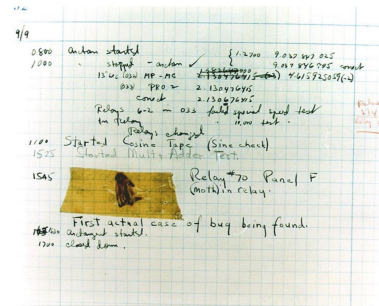 9/9
0800 Antan started { 1.2700 9.037 847 025
1000 " stopped - antan ✓ 9.037 846 995 conect
13" uc (032) MP - MC 4.615925059(-2)
(033) PRO 2 2.130476415
conect 2.130676415
Relays 6-2 in 033 failed special speed test
in relay " 11,000 test.
Relays changed
1100 Started Cosine Tape (Sine check)
1525 Started Multi Adder Test.
1545 Relay #70 Panel F
(Moth) in relay.
First actual case of bug being found.
antangent started.
1700 closed down.